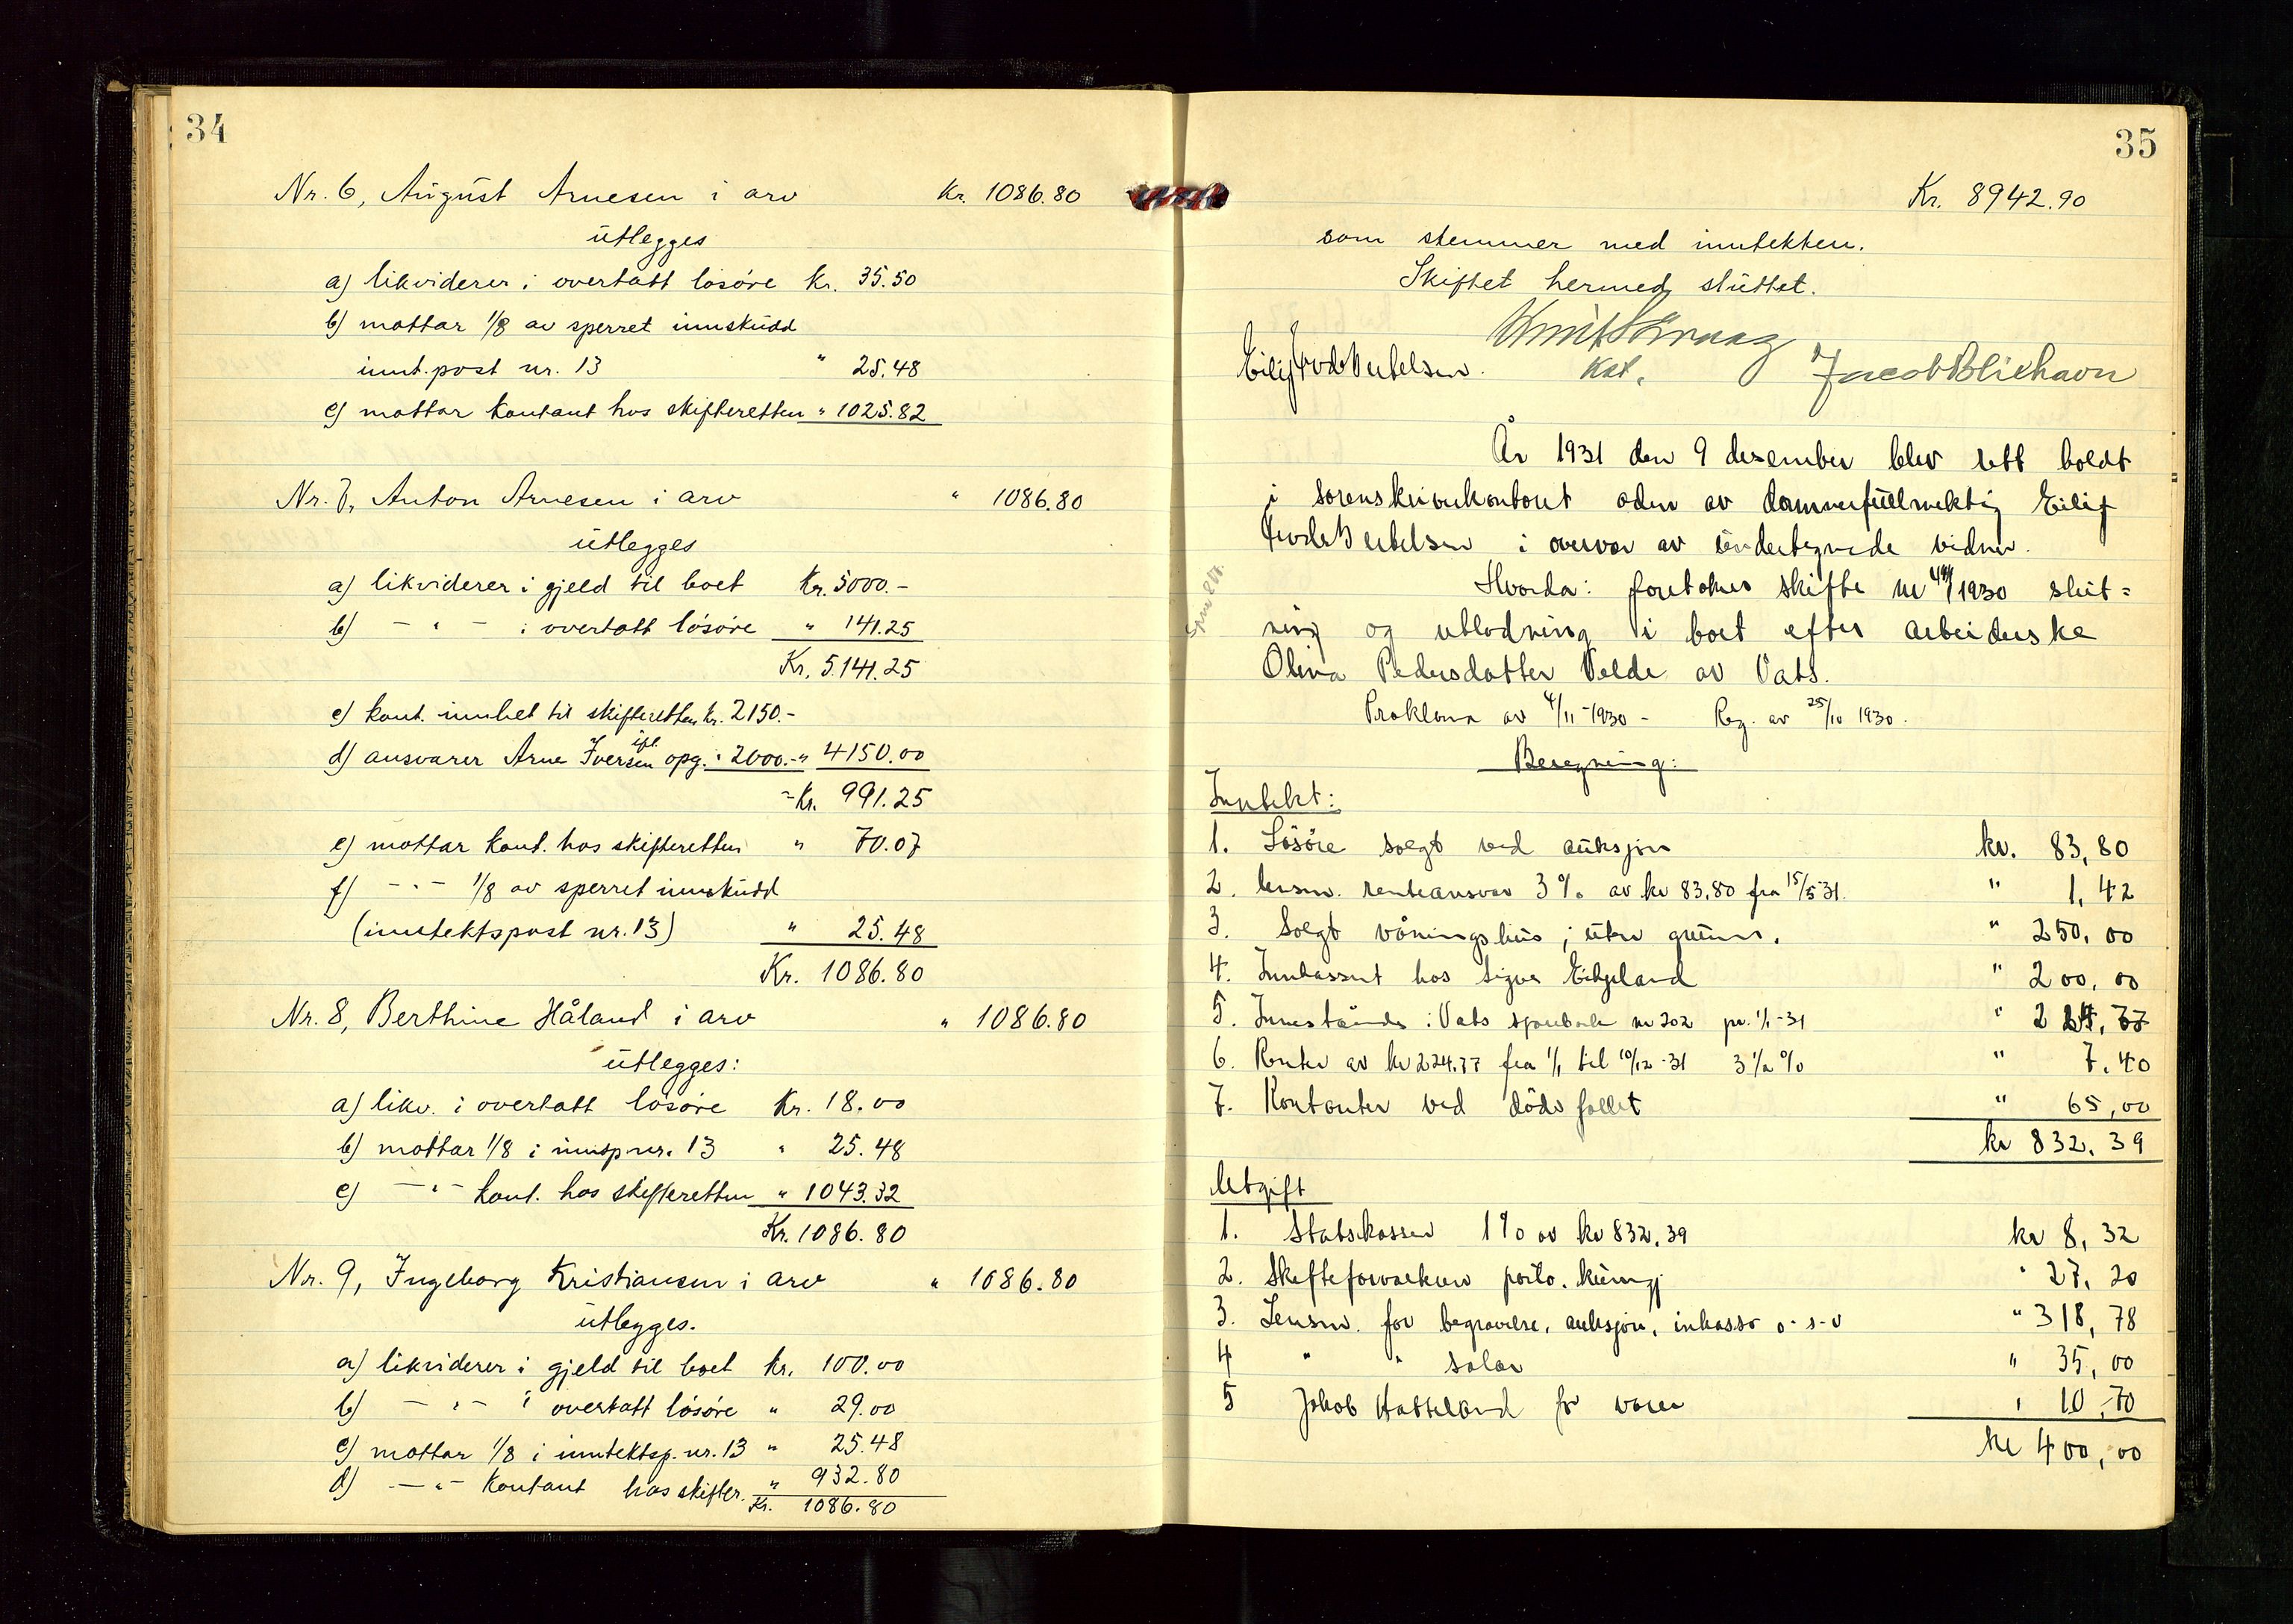 34
Nr. 6, August Arnesen i arv Kr. 1086.80
utlegges
a) likviderer i overtatt løsøre Kr. 35.50
b) mottar 1/8 av sperret innskudd
innt.post nr. 13 " 25.48
c) mottar kontant hos skifteretten " 1025.82
Nr. 7, Anton Arnesen i arv " 1086.80
utlegges
a) likviderer i gjeld til boet Kr. 5000.-
b) - " - i overtatt løsøre " 141.25
Kr. 5141.25
c) kont. innbet til skifteretten kr. 2150.-
d) ansvarer Arne Iversen ifl. opg. " 2000.- " 4150.00
- Kr. 991.25
e) mottar kont. hos skifteretten " 70.07
f) - " - 1/8 av sperret innskudd
(inntektspost nr. 13) " 25.48
Kr. 1086.80
Nr. 8, Berthine Håland i arv " 1086.80
utlegges:
a) likv. i overtatt løsøre Kr. 18.00
b) mottar 1/8 i innt.p nr. 13 " 25.48
c) - " - kont. hos skifteretten " 1043.32
Kr. 1086.80
Nr. 9, Ingeborg Kristiansen i arv " 1086.80
utlegges.
a) likviderer i gjeld til boet kr. 100.00
b) - " - i overtatt løsøre " 29.00
c) mottar 1/8 i inntektsp. nr. 13 " 25.48
d) - " - kontant hos skifter. " 932.80
Kr. 1086.80
35
Kr. 8942.90
som stemmer med inntekten.
Skiftet hermed sluttet.
Eilif Bertelsen. Jacob Bliehavn
År 1931 den 9 desember blev rett holdt
i sorenskriverkontoret oden av dommerfullmektig Eilif
Bertelsen i overvær av undertegnede vidner.
Hvorda: foretokes skifte nr 44/1930 slut=
ning og utlodning i boet efter arbeiderske
Olina Pedersdatter Velde av Vats.
Proklama av 4/11-1930 - Reg. av 25/10 1930.
Beregning:
Inntekt:
1. Løsøre solgt ved auksjon kr. 83,80
2. lensm. renteansvar 3% av kr 83,80 fra 15/5-31. " 1,42
3. Solgt våningshus; uten grunn. " 250,00
4. Innkassert hos Sigva Eikjeland " 200,00
5. Innestående i Vats sparebank nr 202 pr. 1/1-31 " 224,77
6. Renter av kr 224.77 fra 1/1 til 10/12-31 3 1/2 % " 7.40
7. Kontanter ved dødsfallet " 65,00
kr 832.39
Utgift
1. Statskassen 1% av kr 832,39 kr 8,32
2. Skifteforvalteren porto. kunngj " 27,20
3. Lensm. for begravelse, auksjon, inkasso o-s-v " 318,78
4 " " salær " 35,00
5 Jakob Hatteland for varer " 10,70
kr 400,00